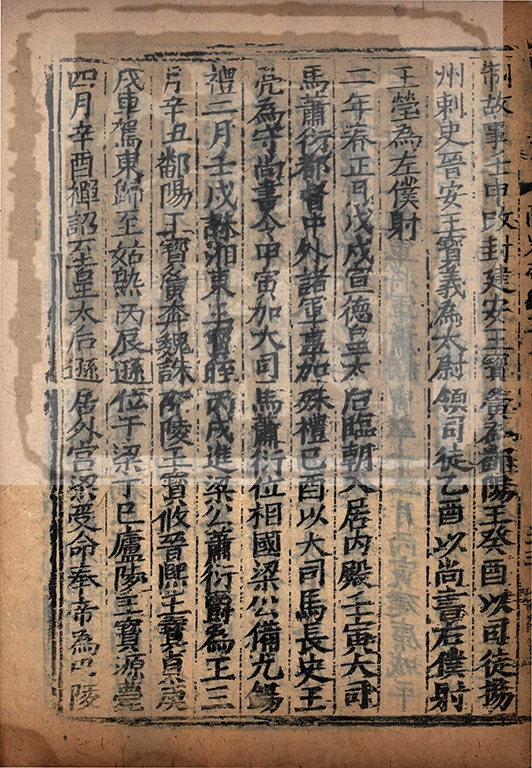 制故事壬申改封建安王寶夤為鄱陽王癸酉以司徒揚
州刺史晉安王寶義為太尉領司徒乙酉以尚書右僕射
王瑩為左僕射
二年春正月戊戌宣德皇太后臨朝入居內殿壬寅大司
馬蕭衍都督中外諸軍事加殊禮己酉以大司馬長史王
亮為守尚書令甲寅加大司馬蕭衍位相國梁公備九錫
禮二月壬戌誅湘東王寶晊丙戌進梁公蕭衍爵為王三
月辛丑鄱陽王寶夤奔魏誅邵陵王寶攸晉熙王寶嵩庚
戌車駕東歸至姑熟丙辰遜位于梁丁巳廬陵王寶源薨
四月辛酉禪詔至皇太后遜居外宮梁受命奉帝為巴陵